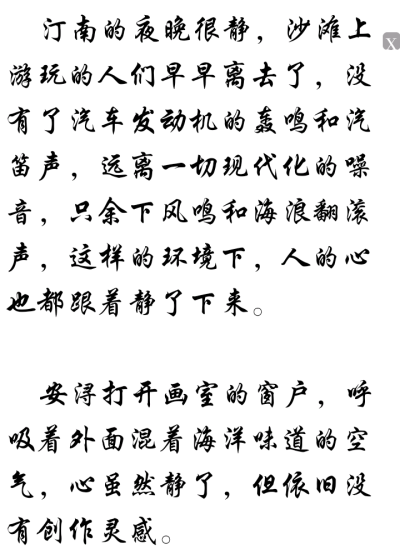 汀南的夜晚很静，沙滩上
游玩的人们早早离去了，没
有了汽车发动机的轰鸣和汽
笛声，远离一切现代化的噪
音，只余下风鸣和海浪翻滚
声，这样的环境下，人的心
也都跟着静了下来。
安浔打开画室的窗户，呼
吸着外面混着海洋味道的空
气，心虽然静了，但依旧没
有创作灵感。
X